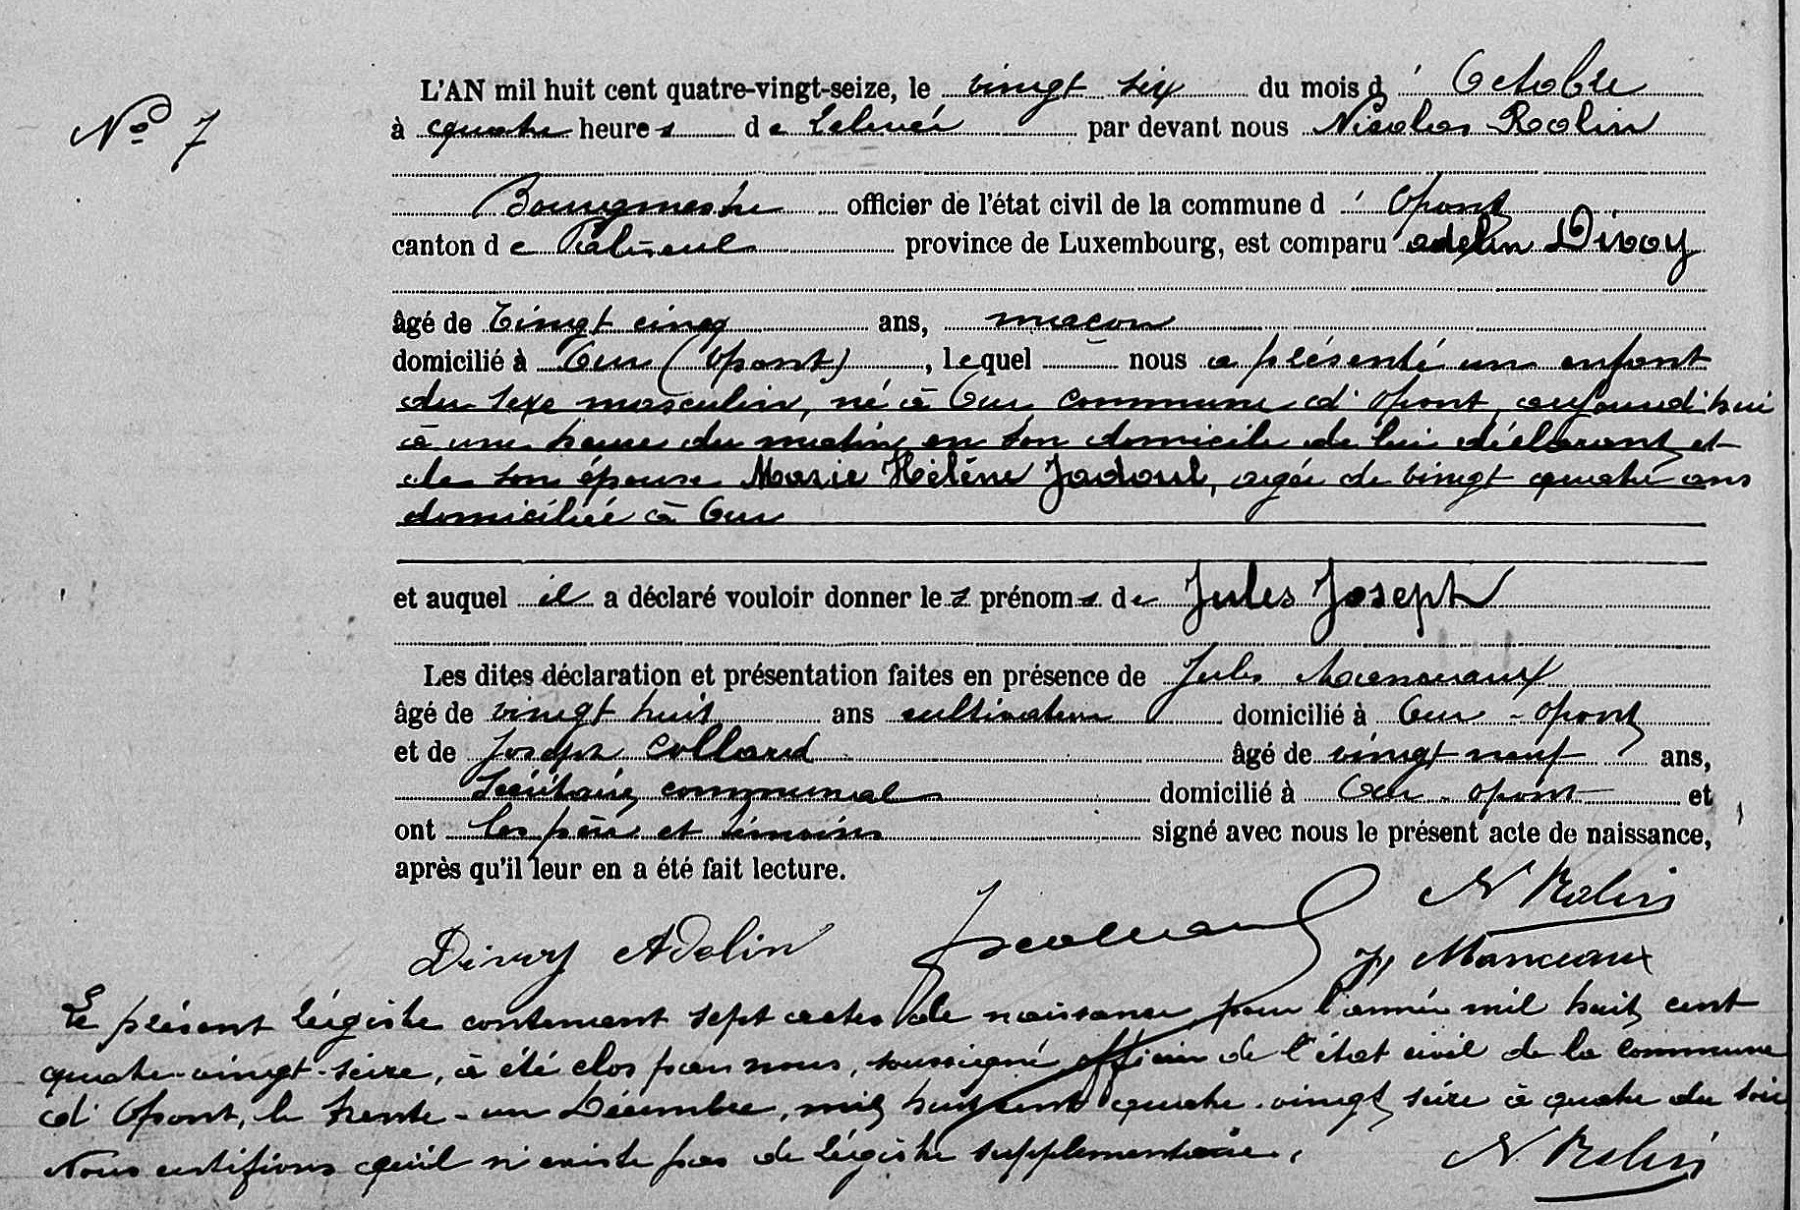 N° 7
L'AN mil huit cent quatre-vingt-seize, le vingt six du mois d' Octobre
à quatre heures de relevée par devant nous Nicolas Rolin
Bourgmestre officier de l'état civil de la commune d' Opont
canton de Paliseul province de Luxembourg, est comparu Adelin Divoy
âgé de vingt cinq ans, maçon
domicilié à Our (Opont), lequel nous a présenté un enfant
du sexe masculin, né à Our commune d'Opont, aujourdhui
à une heure du matin en son domicile de lui déclarant et
de son épouse Marie Hélène Jadoul, agée de vingt quatre ans
domiciliée à Our
et auquel il a déclaré vouloir donner les prénoms de Jules Joseph
Les dites déclaration et présentation faites en présence de Jules Manseaux
âgé de vingt huit ans cultivateur domicilié à Our - Opont
et de Joseph Collard âgé de vingt neuf ans,
secrétaire communal domicilié à Our - Opont et
ont les père et témoins signé avec nous le présent acte de naissance,
après qu'il leur en a été fait lecture.
N Rolin
Divoy Adelin
J. Manseaux
Le présent régistre contenant sept actes de naissance pour l'année mil huit cent
quatre-vingt-seize, à été clos par nous, soussigné officier de l'état civil de la commune
d'Opont, le trente-un Décembre, mil huit cent quatre-vingt seize à quatre du soir
Nous certifions qu'il n'existe pas de régistre supplémentaire.
N Rolin